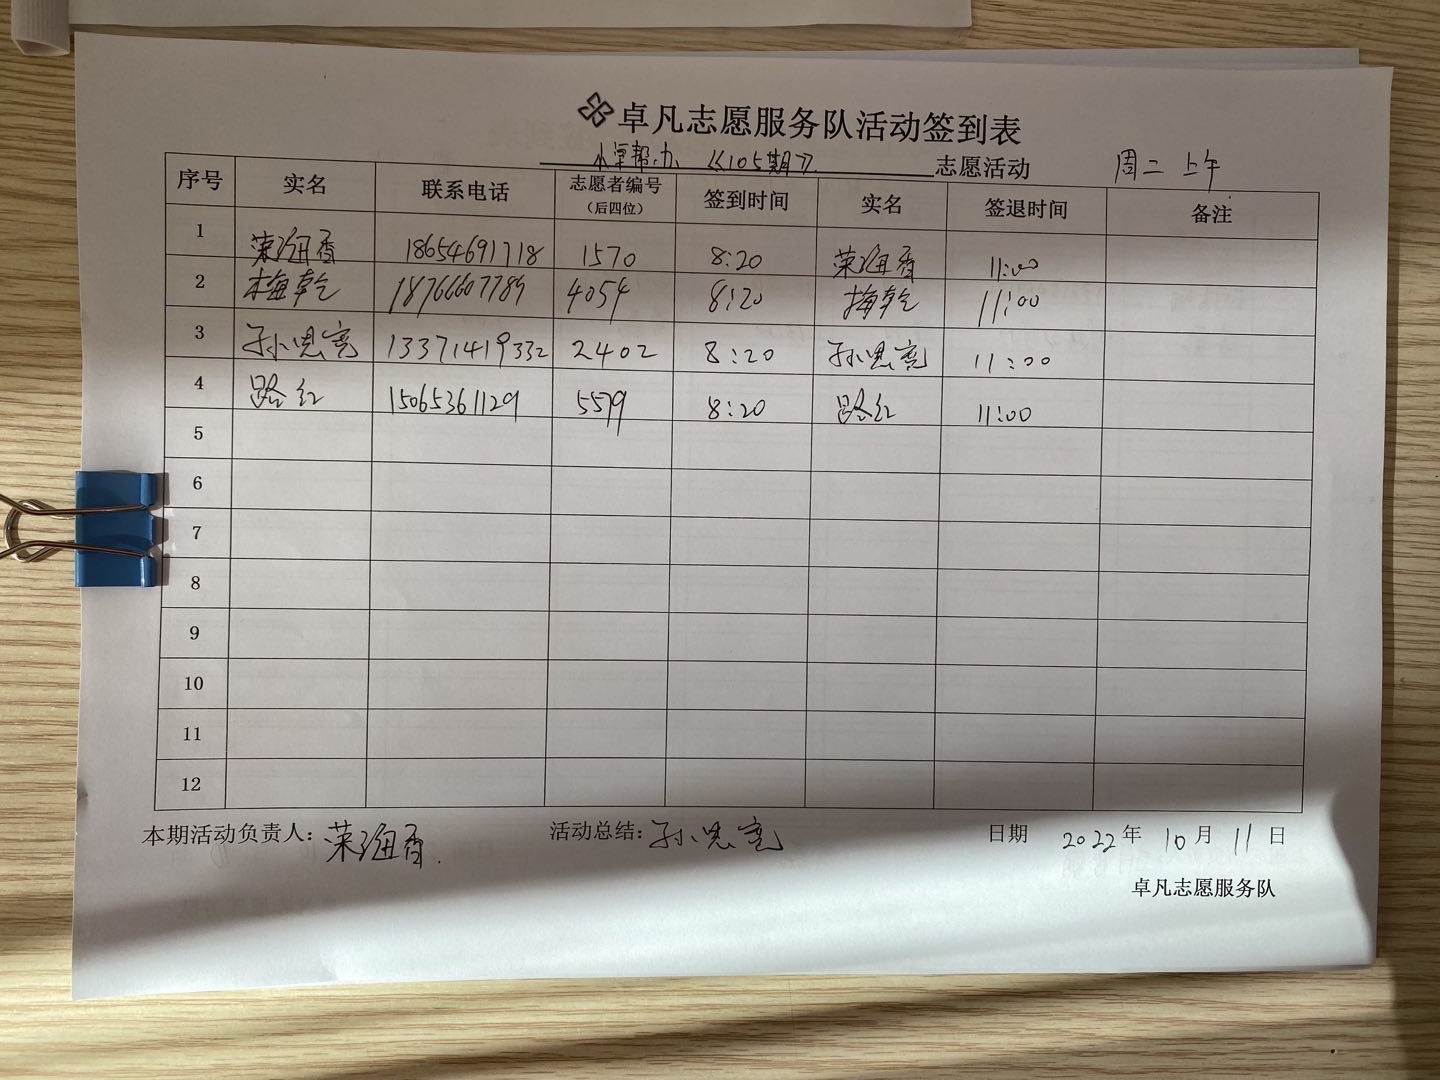 卓凡志愿服务队活动签到表
小草帮办《105期》 志愿活动 周二 上午
序号 实名 联系电话 志愿者编号（后四位） 签到时间 实名 签退时间 备注
1 荣海香 18654691718 1570 8:20 荣海香 11:00
2 梅乾 18766607789 4054 8:20 梅乾 11:00
3 孙思亮 13371419332 2402 8:20 孙思亮 11:00
4 路红 15065361129 5579 8:20 路红 11:00
5
6
7
8
9
10
11
12
本期活动负责人：荣海香. 活动总结：孙思亮 日期 2022年 10月 11日
卓凡志愿服务队